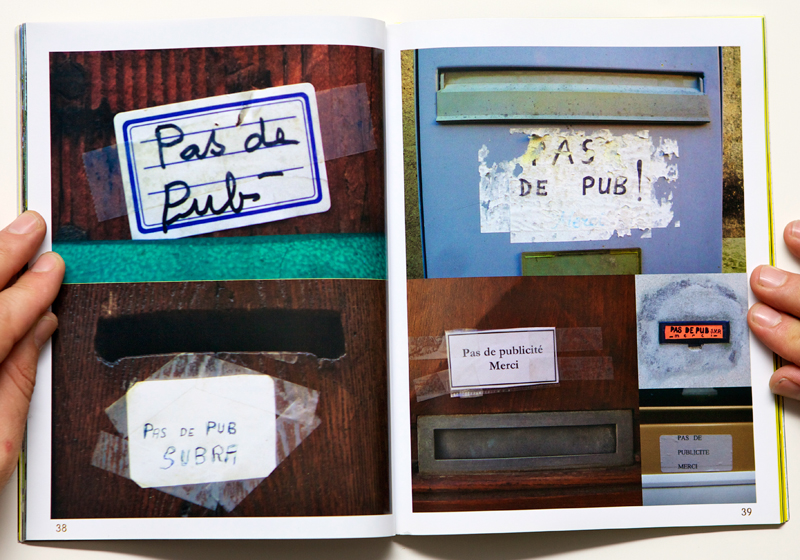 Pas de
Pub
PAS DE PUB
SUBRA
38
PAS
DE PUB!
Pas de publicité
Merci
PAS DE PUB
merci
PAS DE
PUBLICITE
MERCI
39